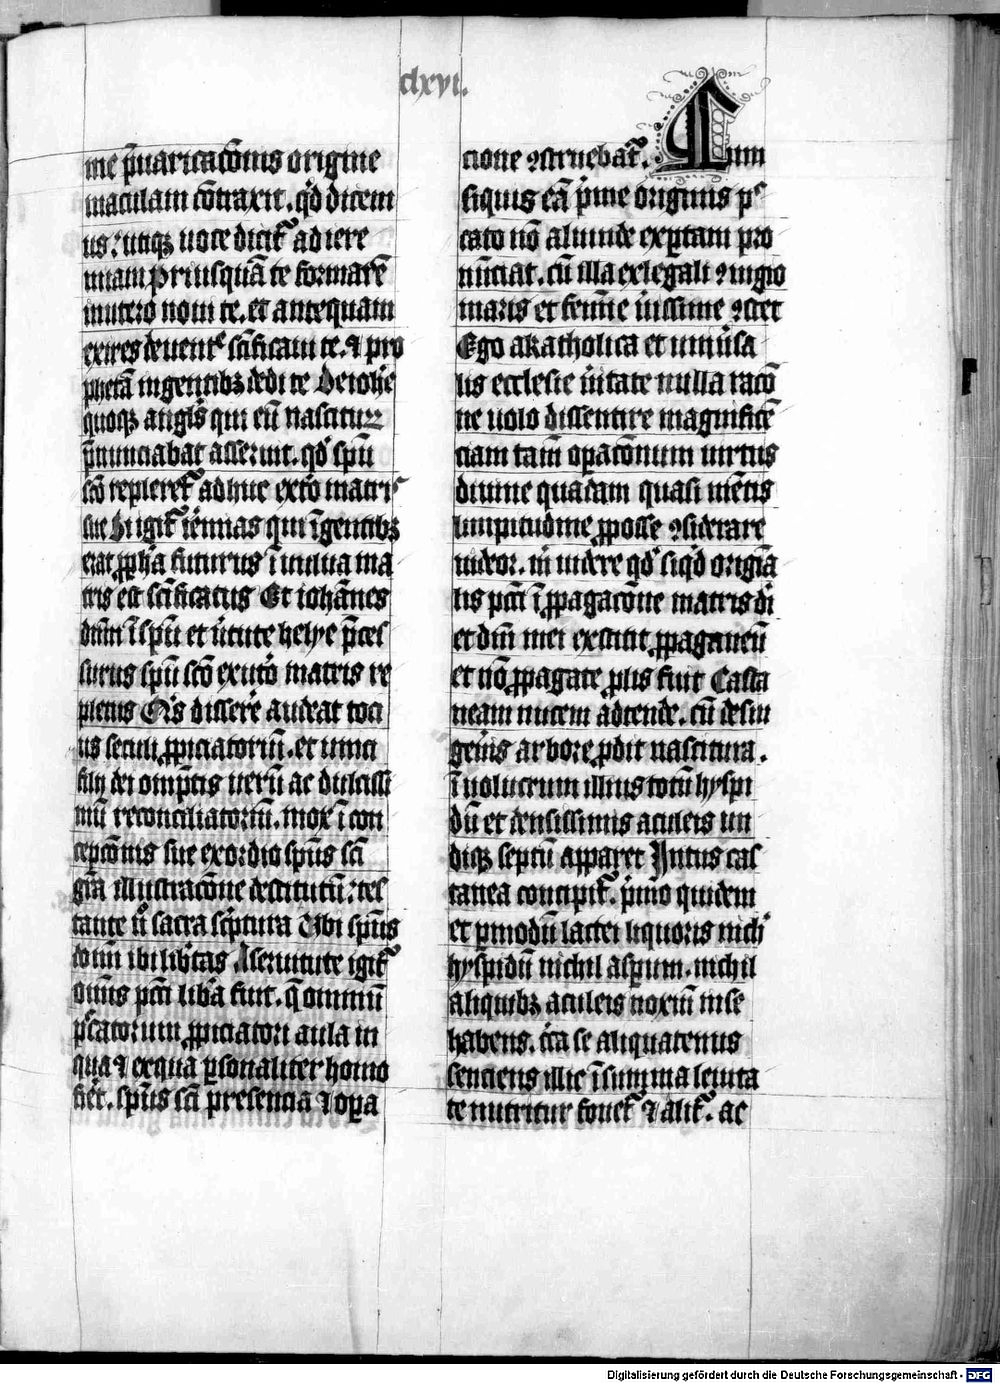 clxvi.
me p̄uaricac̄onis origine
maculam c̄otraxit. qd̄ dicem
us? utiqꝫ uoce dicit᷑ ad iere
miam priusquā te formarē
in utero noui te. et antequam
exires de uent͛ sc̄ificaui te. ⁊ pro
phetā in gentibꝫ dedi te De ioh̄e
quoqꝫ angl̄s qui eū nascitur
p̄nunciabat asseruit. qd̄ sp̄u
sc̄o repleret᷑ adhuc ex uto matris
sue Si igit᷑ ieremias qui ī gentibꝫ
erat ꝓph̄a futurus ī uulua ma
tris est sc̄ificatus Et ioh̄anes
dn̄m ī sp̄u et ūtute helye p̄ces
surus sp̄u sc̄o ex utō matris re
pletus Q͛s dissere᷑ audeat toci
us seculi ꝓpiciatoriū. et unici
filij dei om̄ptis uerū ac dulcissi
mū reconciliatoriū. mox ī con
cepc̄onis sue exordio sp̄us sc̄i
gr̄a illustrac̄one destitutū? tes
tante ū sacra sc̄ptura Ubi sp̄us
domi ibi lib̄tas A seruitute igit᷑
om̄is pc̄ci lib̄a fuit. q̄ omniū
pc̄catorum ꝓpiciatori aula in
qua ⁊ ex qua ꝑsonaliter homo
fiet. sp̄us sc̄i presencia ⁊ opa
cione ꝯstruebat᷑. Cum
siquis eā p̄me originis p͛c
cato nō aliunde exptam pro
nūciat. cū illa ex legali ꝯiugio
maris et femīe ūissime ꝯstet
Ego a katholica et uniūsa
lis ecclesie ūitate nulla racō
ne uolo dissentire magnificē
ciam tam̄ opac̄onum uirtus
diuine quadam quasi mētis
limpitudine ꝓ posse ꝯsiderare
uideor. m̄ uidere qd̄ siqd̄ origīa
lis pc̄ci ī ꝓpagac̄one matris di
et dm̄ mei exstitit ꝓpagantiū
et nō ꝓpagate ꝓlis fuit Casta
neam nucem adtende. cū de sui
gen̄is arbore ꝓdit nascitura.
ī uolucrum illius totū hyspi
dū et densissimis aculeis un
diqꝫ septū apparet Intus cas
tanea concipit᷑. p̄mo quidem
et ꝑ modū lactei liquoris nich̄
hyspidū nichil aspum. nichil
aliquibꝫ aculeis noxiū in se
habens. ita se aliquatenus
senciens illic ī summa leuita
te nutritur fouet᷑ ⁊ alit᷑. ac
Digitalisierung gefördert durch die Deutsche Forschungsgemeinschaft - DFG